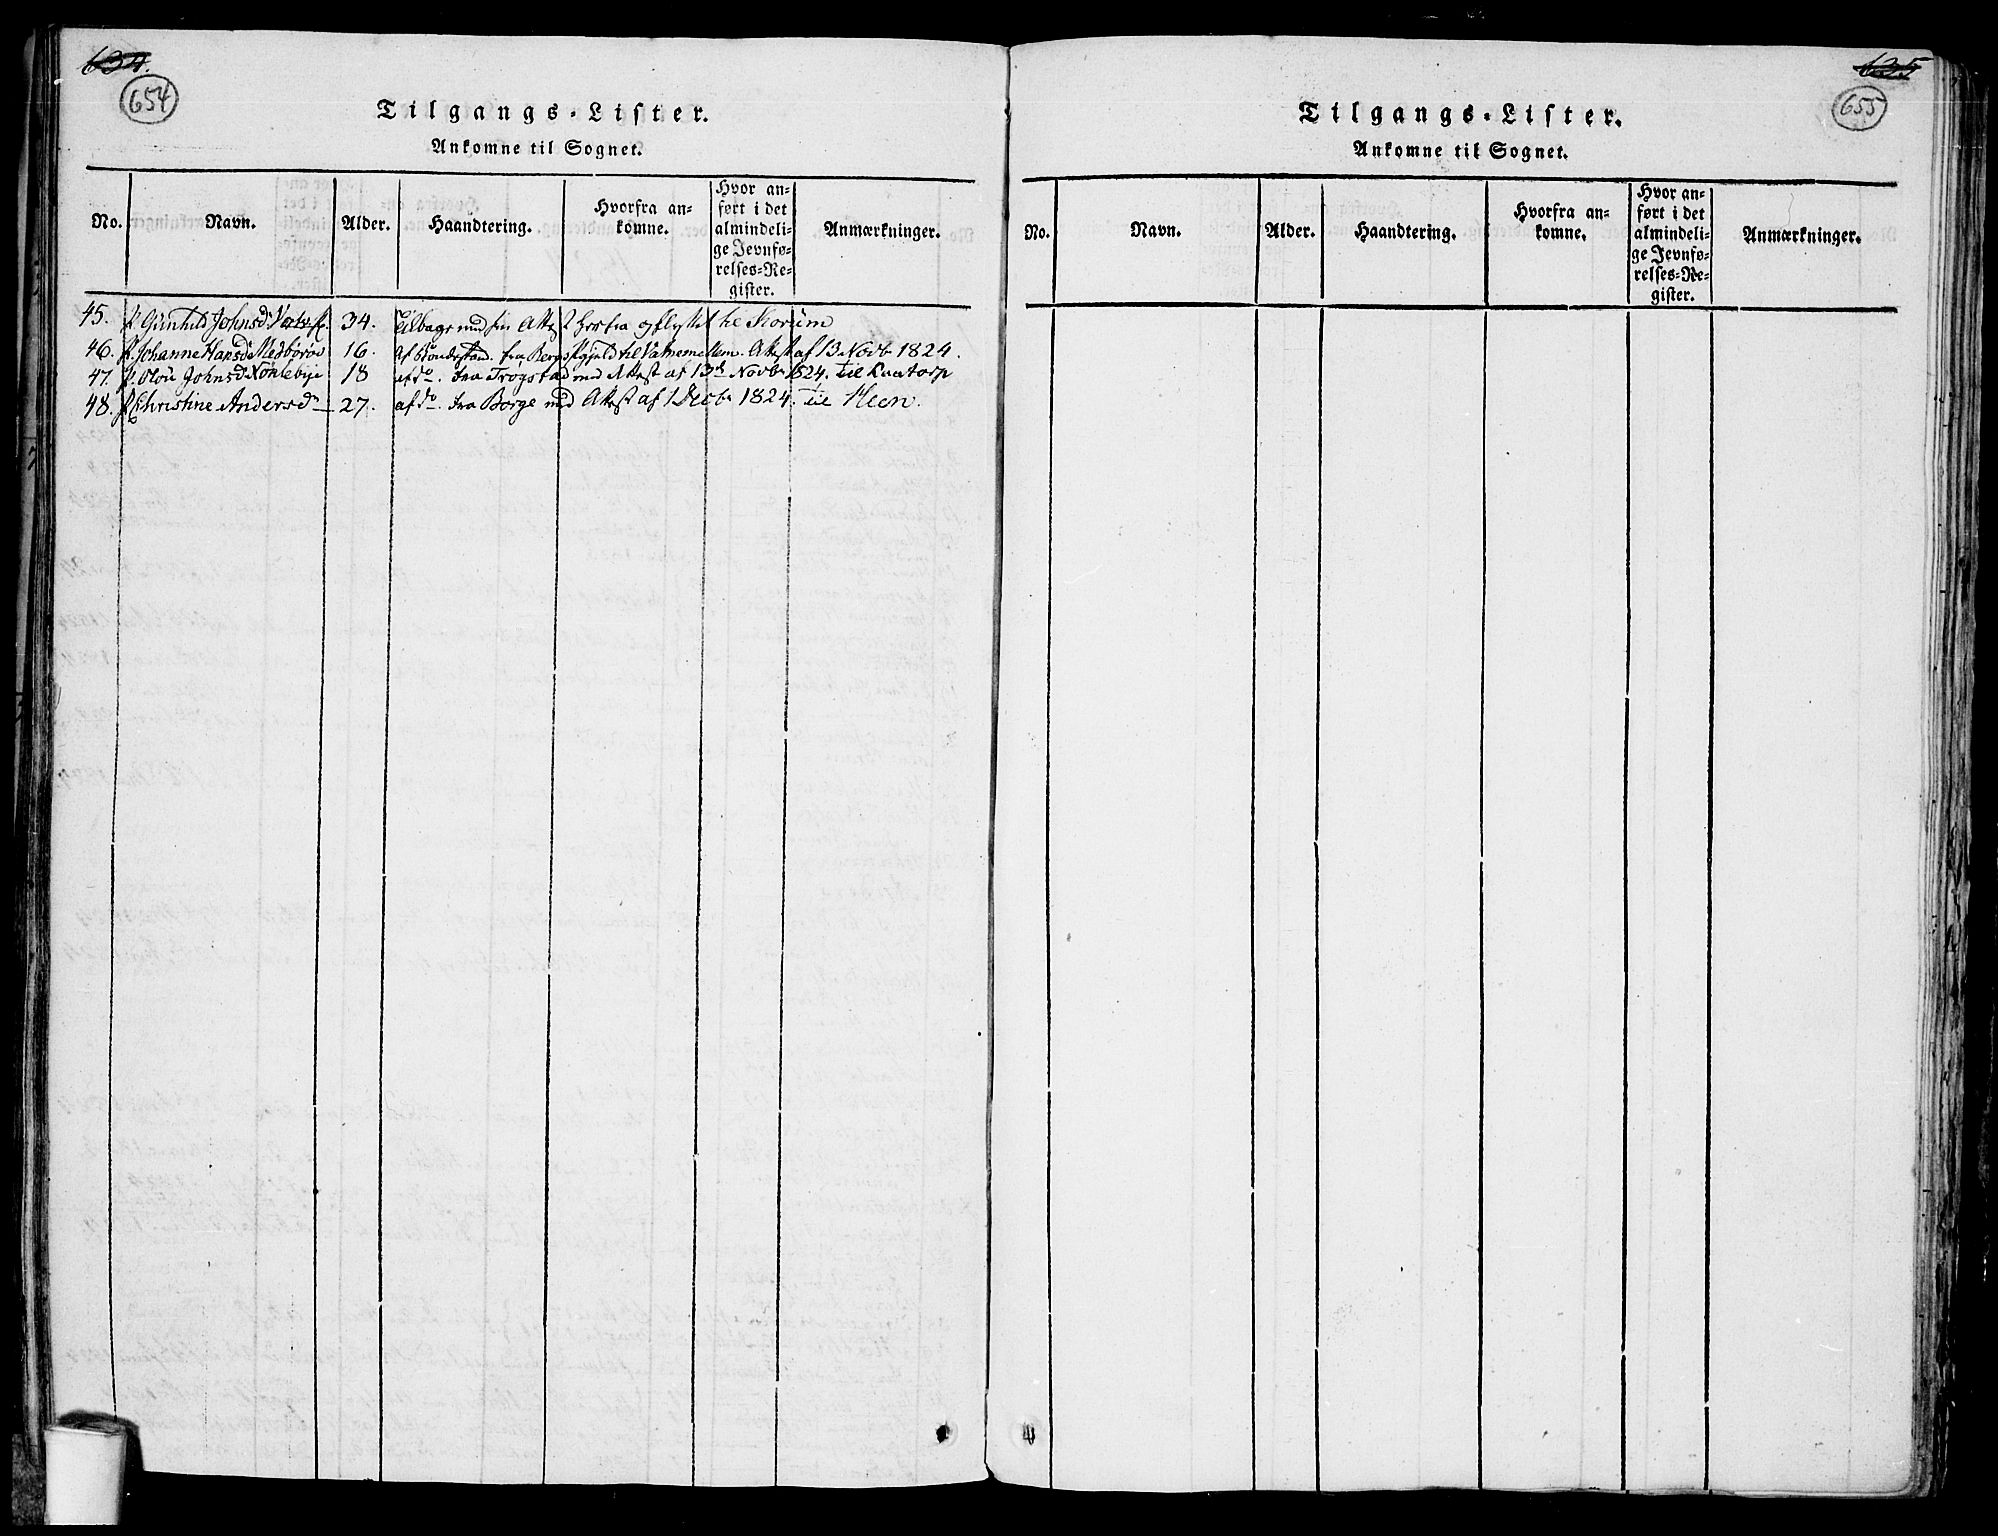 634.
654
Tilgangs-Lister.
Ankomne til Sognet.
No. Navn. Alder. Haandtering. Hvorfra an=
komne. Hvor an=
ført i det
almindeli=
ge Jevnfø=
relses=Re=
gister. Anmærkninger.
45. P. Gunhild Johnsdr 34. Tilbage med sin Attest herfra og flyttet til Korum
46. P. Johanne Hansdr 16. Af Bondestand. fra Bergs til Attest af 13 Novbr 1824.
47. P. Johnsd 18 af do. fra Trøgstad med Attest af 13de Novbr 1824. til
48. P. Christine Andersdr 27. af do. fra Borge med Attest af 1 Decbr 1824. til Heen.
635
655
Tilgangs-Lister.
Ankomne til Sognet.
No. Navn. Alder. Haandtering. Hvorfra an=
komne. Hvor an=
ført i det
almindeli=
ge Jevnfø=
relses=Re=
gister. Anmærkninger.